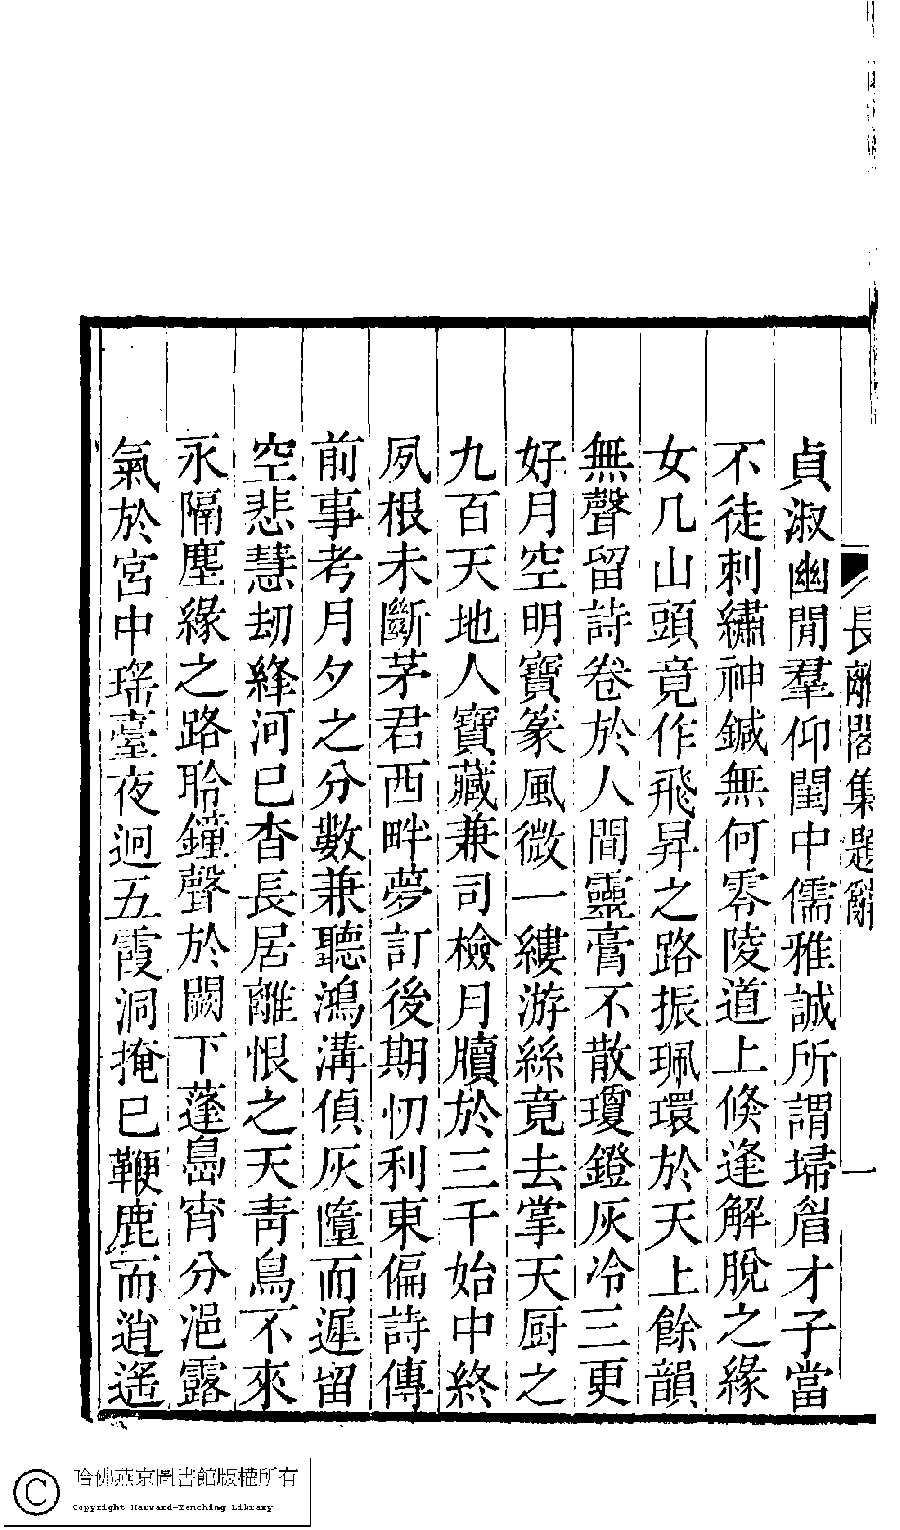 長離閣集題辭
一
貞淑幽閒羣仰閨中儒雅誠所謂埽眉才子當
不徒刺繡神鍼無何零陵道上倏逢解脫之緣
女几山頭竟作飛昇之路振珮環於天上餘韻
無聲留詩卷於人間靈膏不散瓊鐙灰冷三更
好月空明寶篆風微一縷游絲竟去掌天厨之
九百天地人寶藏兼司檢月牘於三千始中終
夙根未斷茅君西畔夢訂後期忉利東偏詩傳
前事考月夕之分數兼聽鴻溝偵灰墮而遲留
空悲慧刧絳河已杳長居離恨之天青鳥不來
永隔塵緣之路聆鐘聲於闕下蓬島宵分浥露
氣於宮中瑤臺夜迥五霞洞掩已鞭鹿而逍遙
哈佛燕京圖書館版權所有
Copyright Harvard-Yenching Library